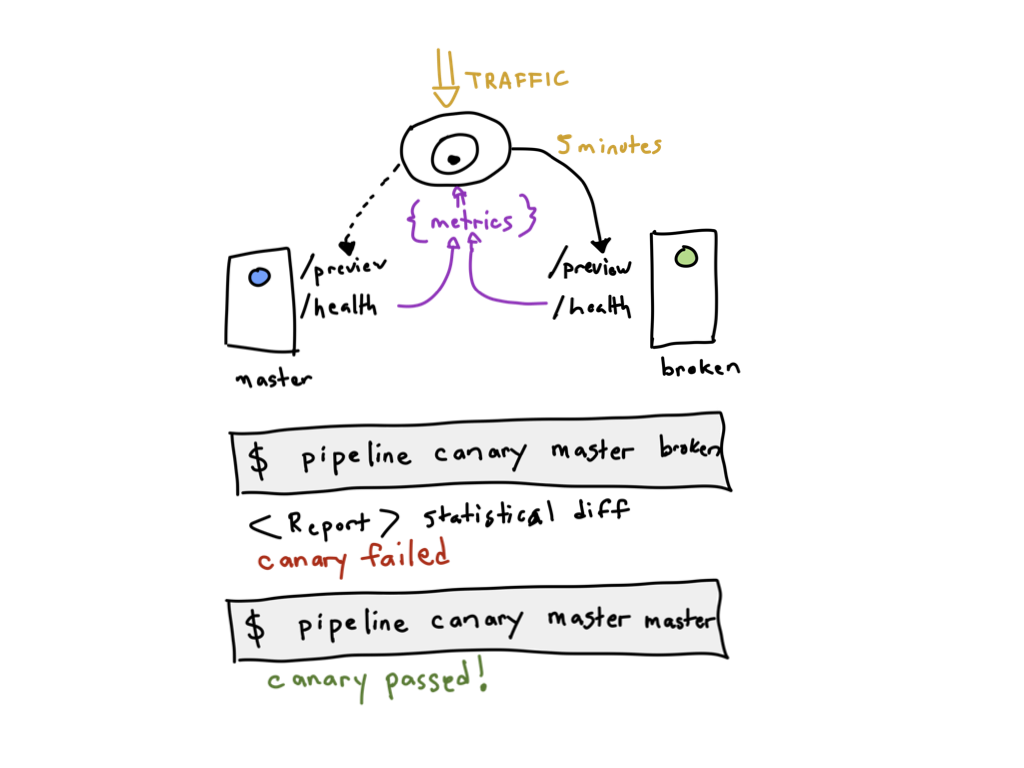 TRAFFIC
5 minutes
{ metrics }
/preview
/health
/preview
/health
master
broken
$ pipeline canary master broken
<Report> statistical diff
canary failed
$ pipeline canary master master
canary passed!